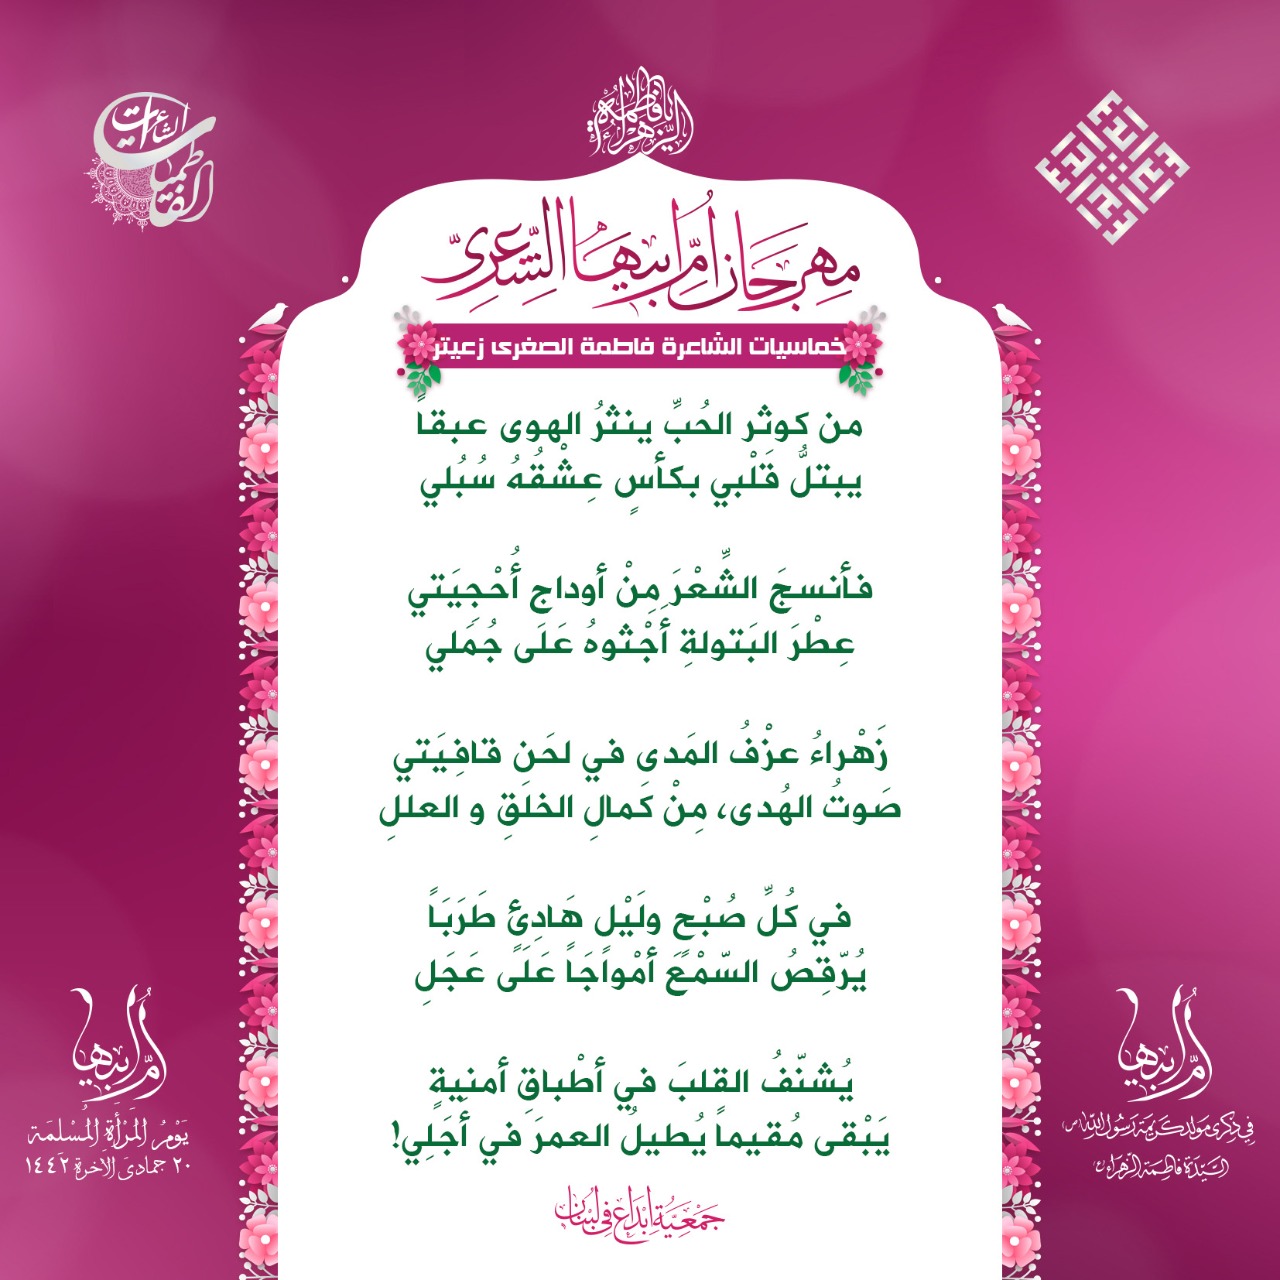 يا فاطمة الزهراء
الشاعرات
الفاطميات
مهرجان أم أبيها الشعري
خماسيات الشاعرة فاطمة الصغرى زعيتر
من كوثَِر الحُبِّ ينثرُ الهوى عبقاً
يبتلُّ قَلْبي بكأسٍ عِشْقُهُ سُبُلي
فأنسجَ الشِّعْرَ مِنْ أوداجِ أُحْجِيَتي
عِطْرَ البَتولةِ أجْثوهُ عَلَى جُمَلي
زَهْراءُ عزْفُ المَدى في لحَنِ قافِيَتي
صَوتُ الهُدى، مِنْ كَمالِ الخلَقِ و العللِ
في كُلِّ صُبْحٍ ولَيْلٍ هَادِئٍ طَرَبَاً
يُرّقِصُ السّمْعَ أمْواجَاً عَلَى عَجَلِ
يُشنّفُ القلبَ في أطْباقِ أمنيةٍ
يَبْقى مُقيماً يُطيلُ العمرَ في أجَلِي!
أم أبيها
يَوْمُ المَرْأَةِ المُسْلمَة
٢٠ جمادى الآخرة ١٤٤٢
أم أبيها
في ذكرى مولد كريمة رسول الله (ص)
السيّدة فاطمة الزهراء (ع)
جَمْعِيَّة إبْدَاع في لبْنَان